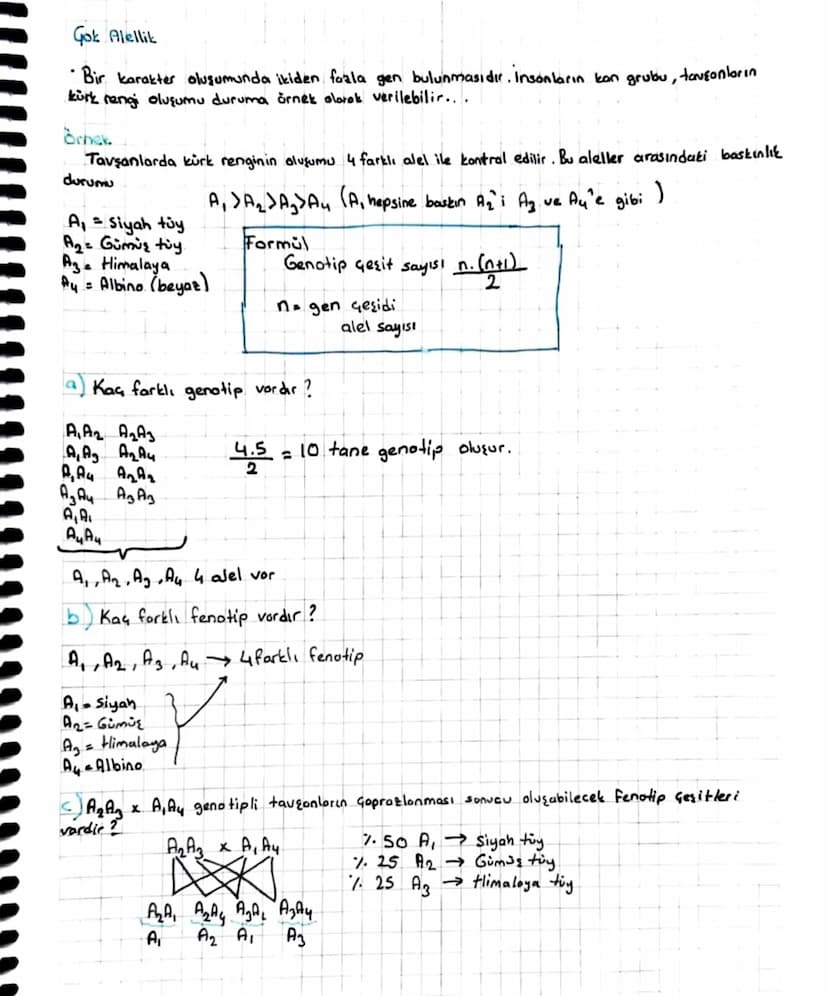 Çok Alellik
· Bir karakter oluşumunda ikiden fazla gen bulunmasıdır. İnsanların kan grubu, tavşanların
kürk rengi oluşumu duruma örnek olarak verilebilir...
Örnek
Tavşanlarda kürk renginin oluşumu 4 farklı alel ile kontrol edilir. Bu aleller arasındaki baskınlık
durumu
A₁>A₂>A₃>A₄ (A₁ hepsine baskın A₂'i A₃ ve A₄'e gibi)
A₁ = Siyah tüy
A₂ = Gümüş tüy
A₃ = Himalaya
A₄ = Albino (beyaz)
Formül
Genotip çeşit sayısı n.(n+1)/2
n = gen çeşidi
alel sayısı
a) Kaç farklı genotip vardır?
A₁A₂ A₂A₃
A₁A₃ A₂A₄
A₁A₄ A₂A₂
A₃A₄ A₃A₃
A₁A₁
A₄A₄
4.5/2 = 10 tane genotip oluşur.
A₁, A₂, A₃, A₄ 4 alel var
b) Kaç farklı fenotip vardır?
A₁, A₂, A₃, A₄ → 4 farklı fenotip
A₁ = Siyah
A₂ = Gümüş
A₃ = Himalaya
A₄ = Albino
c) A₂A₃ x A₁A₄ genotipli tavşanların çaprazlanması sonucu oluşabilecek fenotip çeşitleri
vardır?
A₂A₃ x A₁A₄
A₂A₁ A₂A₄ A₃A₁ A₃A₄
A₁ A₂ A₁ A₃
%50 A₁ → Siyah tüy
%25 A₂ → Gümüş tüy
%25 A₃ → Himalaya tüy